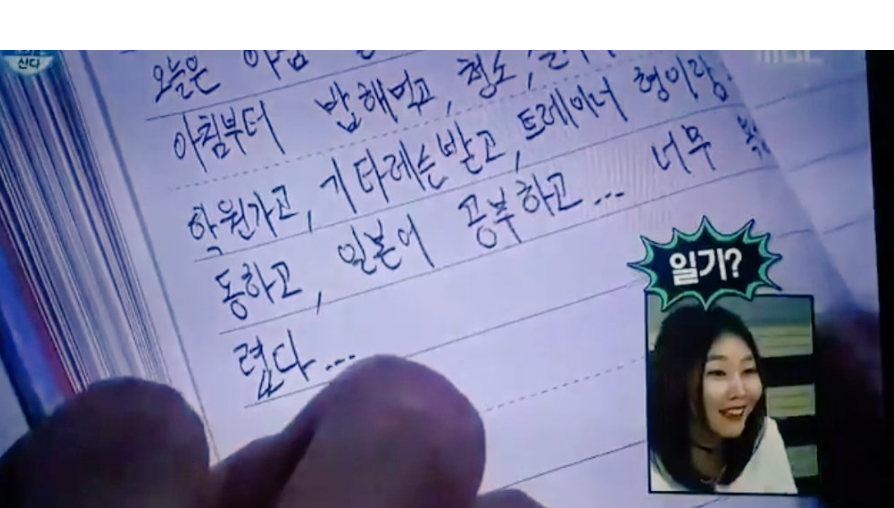 산다
MBC
오늘은 아침
아침부터 밥해먹고, 청소,
학원가고, 기타레슨받고, 트레이너 형이랑
동하고, 일본어 공부하고... 너무
렸다...
일기?